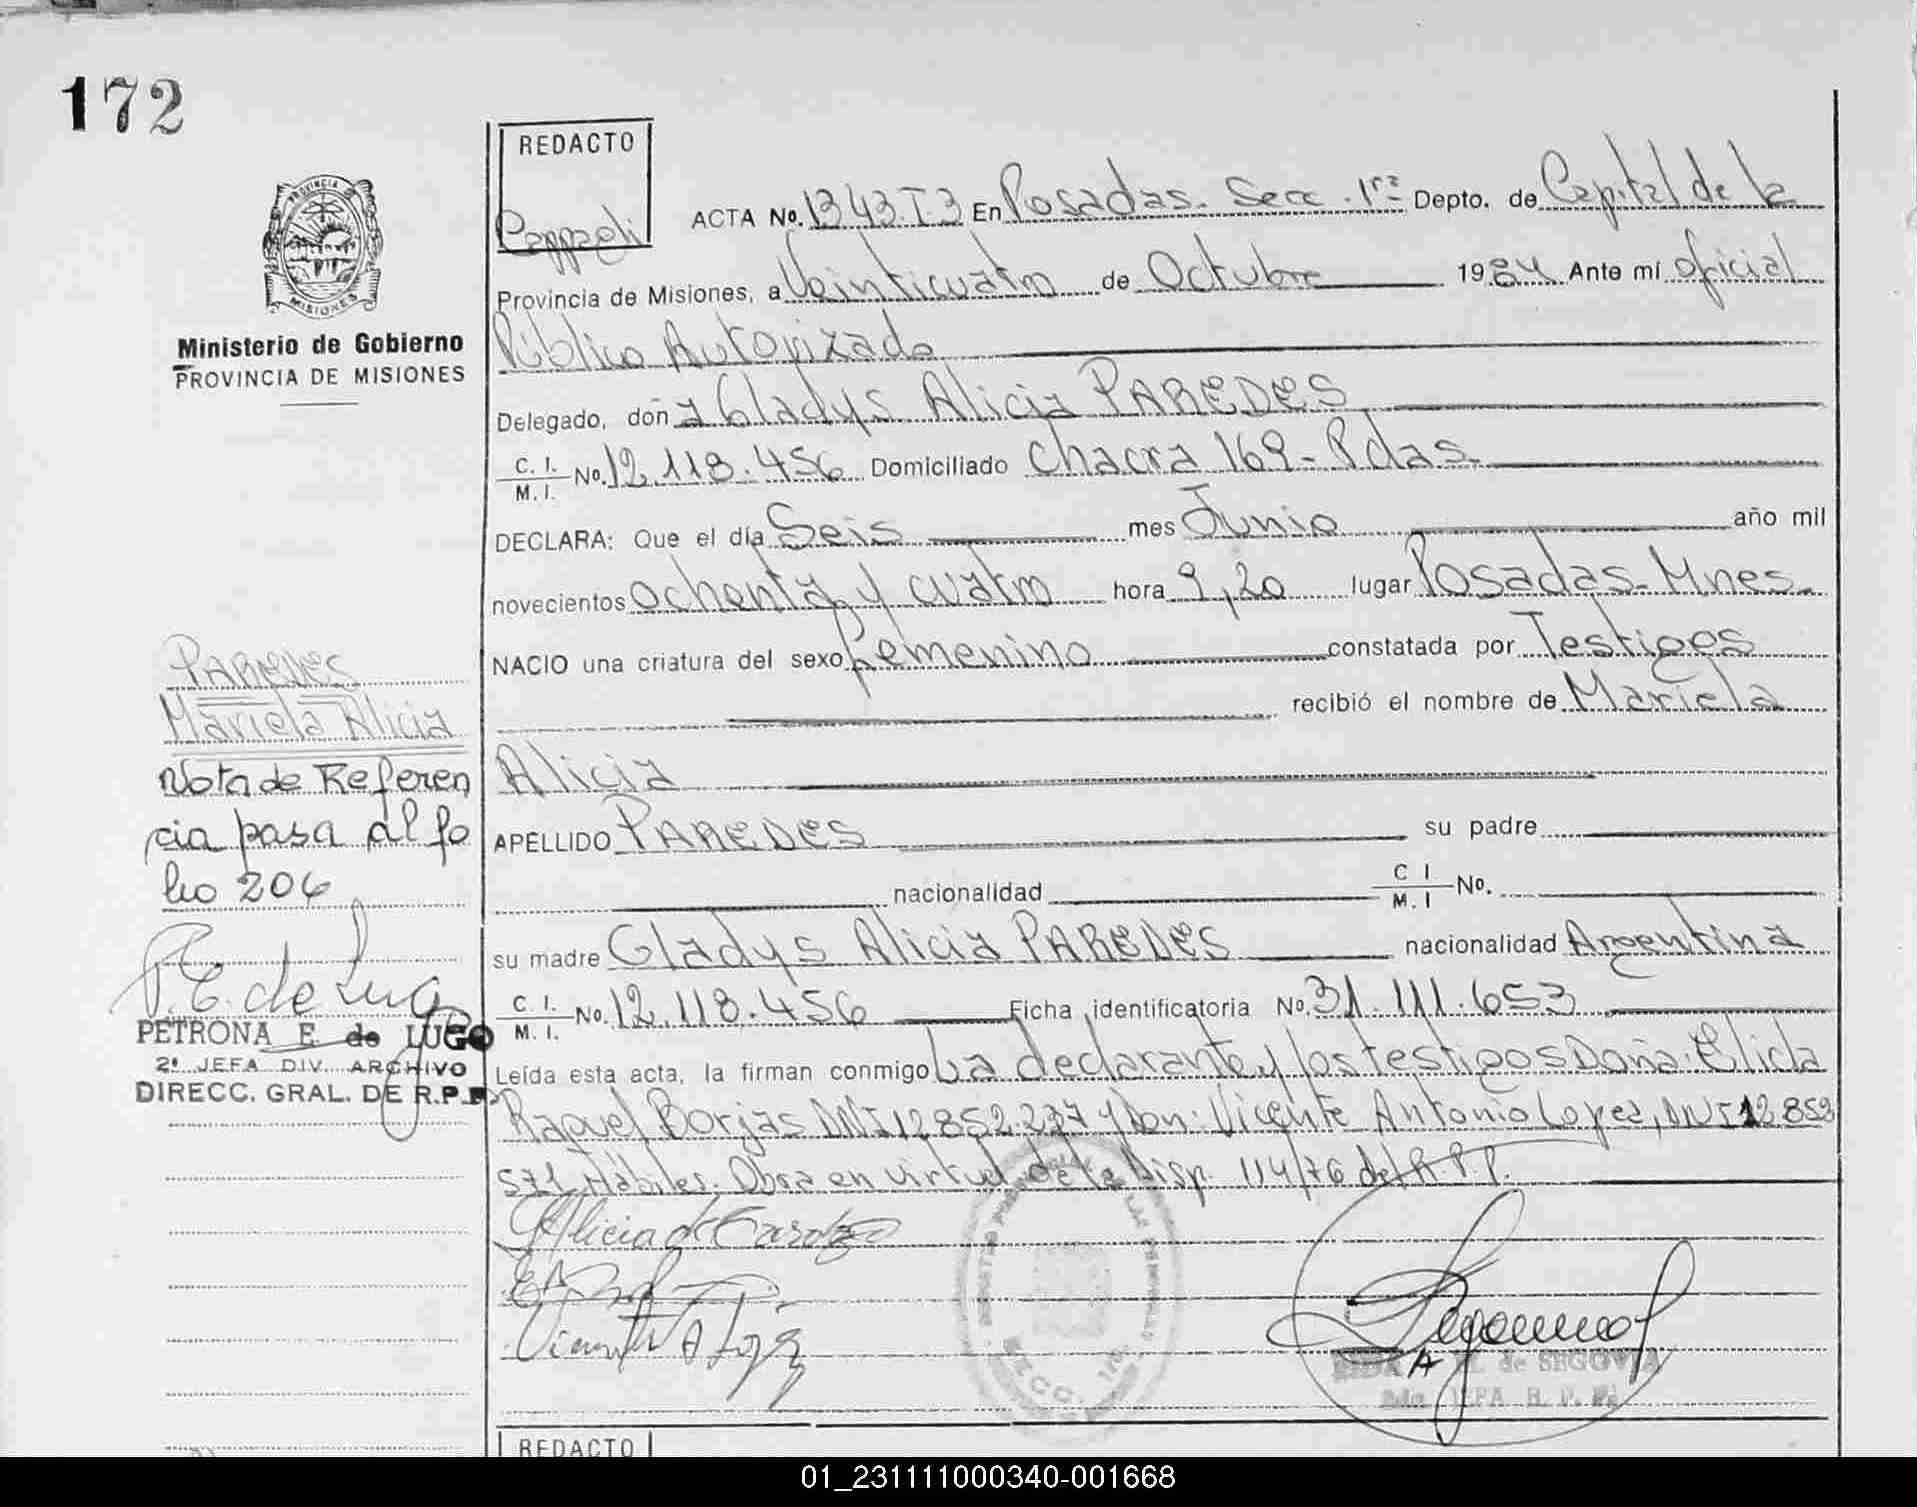 172
REDACTO
ACTA No. 1343.T3 En Posadas. Secc. 1ra Depto. de Capital de la
PROVINCIA
MISIONES
Provincia de Misiones, a Veinticuatro de Octubre 1984 Ante mí oficial
Público Autorizado
Ministerio de Gobierno
PROVINCIA DE MISIONES
Delegado, don a Gladys Alicia PAREDES
C. I. M. I. No. 12.118.456 Domiciliado Chacra 169 - Pdas.
DECLARA: Que el día Seis mes Junio año mil
novecientos ochenta y cuatro hora 9,20 lugar Posadas - Mnes.
NACIO una criatura del sexo femenino constatada por Testigos
recibió el nombre de Mariela
Alicia
APELLIDO PAREDES su padre
nacionalidad C I M. I No.
su madre Gladys Alicia PAREDES nacionalidad Argentina
C. I. M. I. No. 12.118.456 Ficha identificatoria No. 31.111.653
Leída esta acta, la firman conmigo La declarante y los testigos Doña: Elida
Raquel Borjas DNI 12852.237 y Don: Vicente Antonio Lopez, DNI 12.852
571 Hábiles. Obra en virtud de la Disp. 114/76 del R.P.P.
PAREDES
Mariela Alicia
Nota de Referen
cia pasa al fo
lio 206
P. E. de Lugo
PETRONA E. de LUGO
2ª JEFA DIV. ARCHIVO
DIRECC. GRAL. DE R.P.P.
Alicia de
Vicente A Lopez
SECC. 1ra.
A L. de SEGOVIA
2da JEFA R. P. P.
REDACTO
01_231111000340-001668